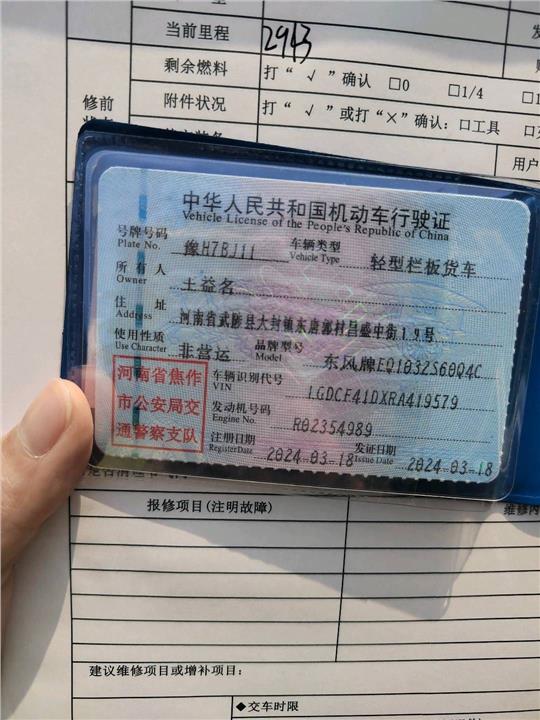 当前里程
2943
剩余燃料
打“√”确认 □0 □1/4
修前
附件状况
打“√”或打“×”确认：□工具
用户
中华人民共和国机动车行驶证
Vehicle License of the People's Republic of China
号牌号码 豫H7BJ11 车辆类型 轻型栏板货车
Plate No. Vehicle Type
所有人 王益名
Owner
住址 河南省武陟县大封镇东唐郭村昌盛中街19号
Address
使用性质 非营运 品牌型号 东风牌EQ1032S60Q4C
Use Character Model
河南省焦作
市公安局交
通警察支队
车辆识别代号 LGDCF41DXRA419579
VIN
发动机号码 R02354989
Engine No.
注册日期 2024-03-18 发证日期 2024-03-18
Register Date Issue Date
报修项目(注明故障)
维修内
建议维修项目或增补项目：
◆交车时限